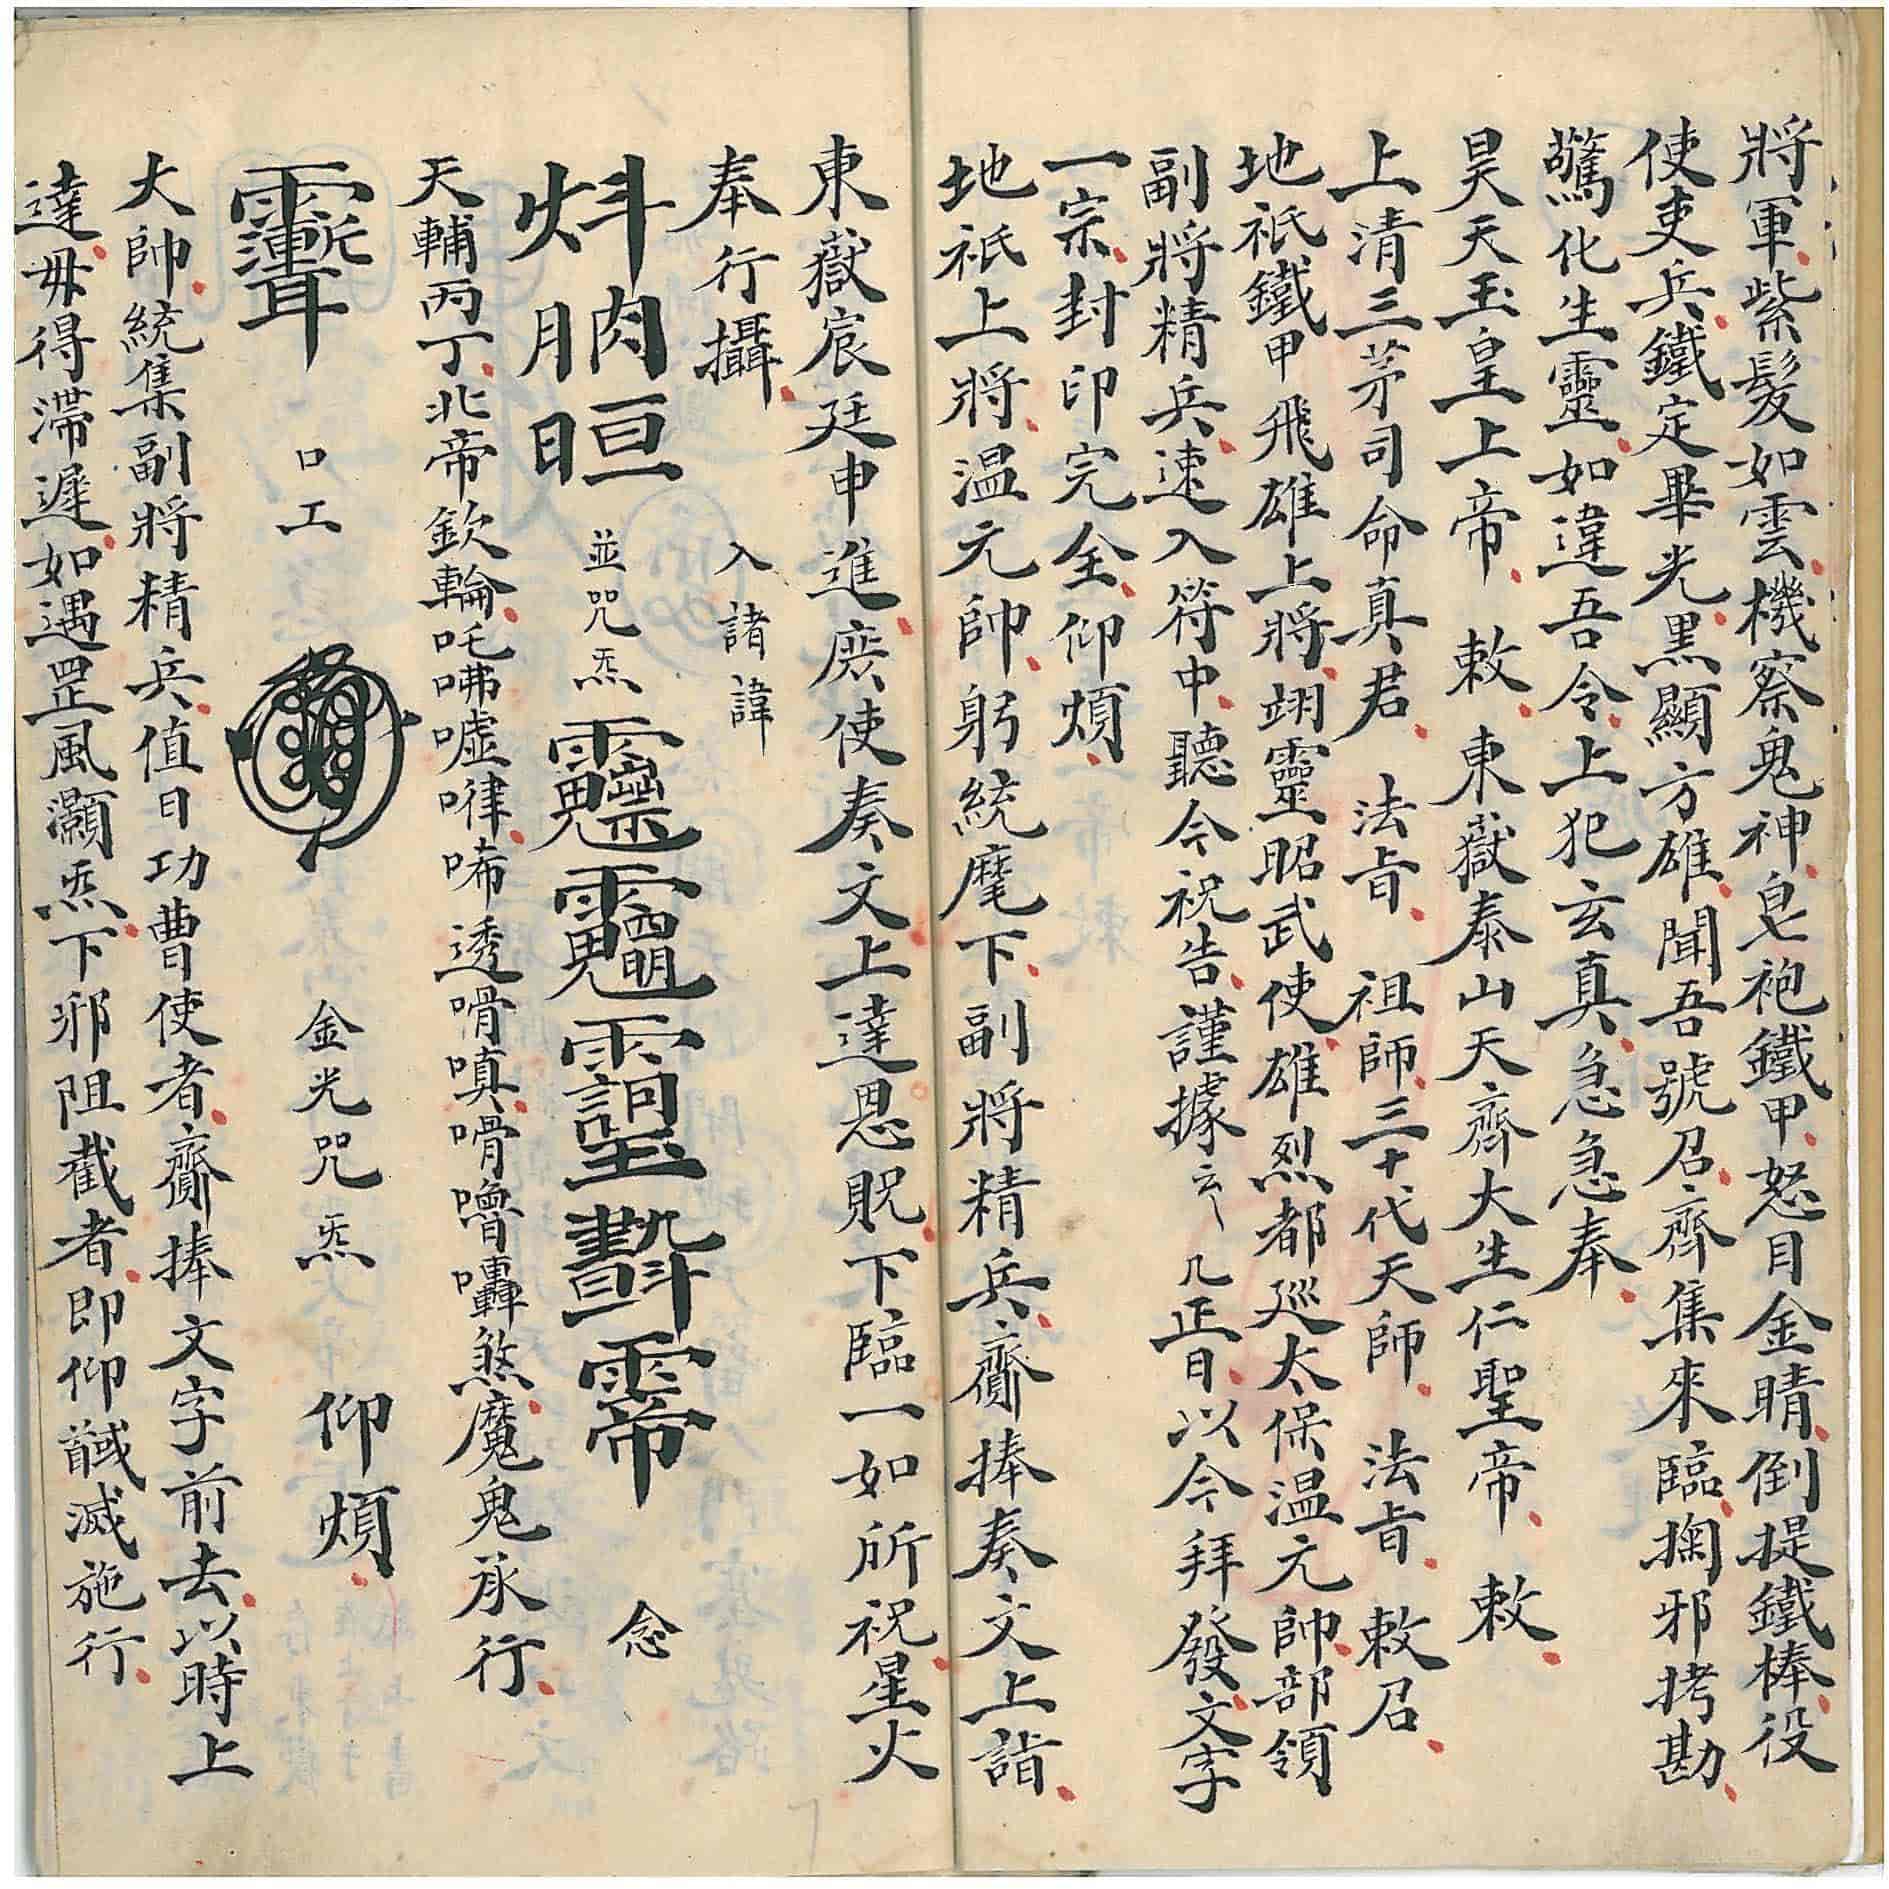 將軍紫髮如雲機察鬼神皂袍鐵甲怒目金睛倒提鐵棒役
使吏兵鐵定畢光黑顯方雄聞吾號召齊集來臨掬邪拷勘
驚化生靈如違吾令上犯玄真急急奉
昊天玉皇上帝 敕東嶽泰山天齊大生仁聖帝敕
上清三茅司命真君 法旨 祖師三十代天師 法旨敕召
地祇鐵甲飛雄上將翊靈昭武使雄烈都巡太保温元帥部領
副將精兵速入符中聽令祝告謹據云 几正日以今拜發文字
一宗封印完全仰煩
地祇上將温元帥躬統麾下副將精兵齎捧奏文上詣
東嶽宸廷申進庶使奏文上達恩貺下臨一如所祝星火
奉行攝 入諸諱
並咒炁 念
天輔丙丁北帝欽輪吒咈嘘嘩唏透嗗嗔嗗嚕囀煞魔鬼承行
口工 金光咒炁 仰煩
大帥統集副將精兵值日功曹使者齎捧文字前去以時上
達毋得滯遲如遇罡風灝炁下邪阻截者即仰馘滅施行